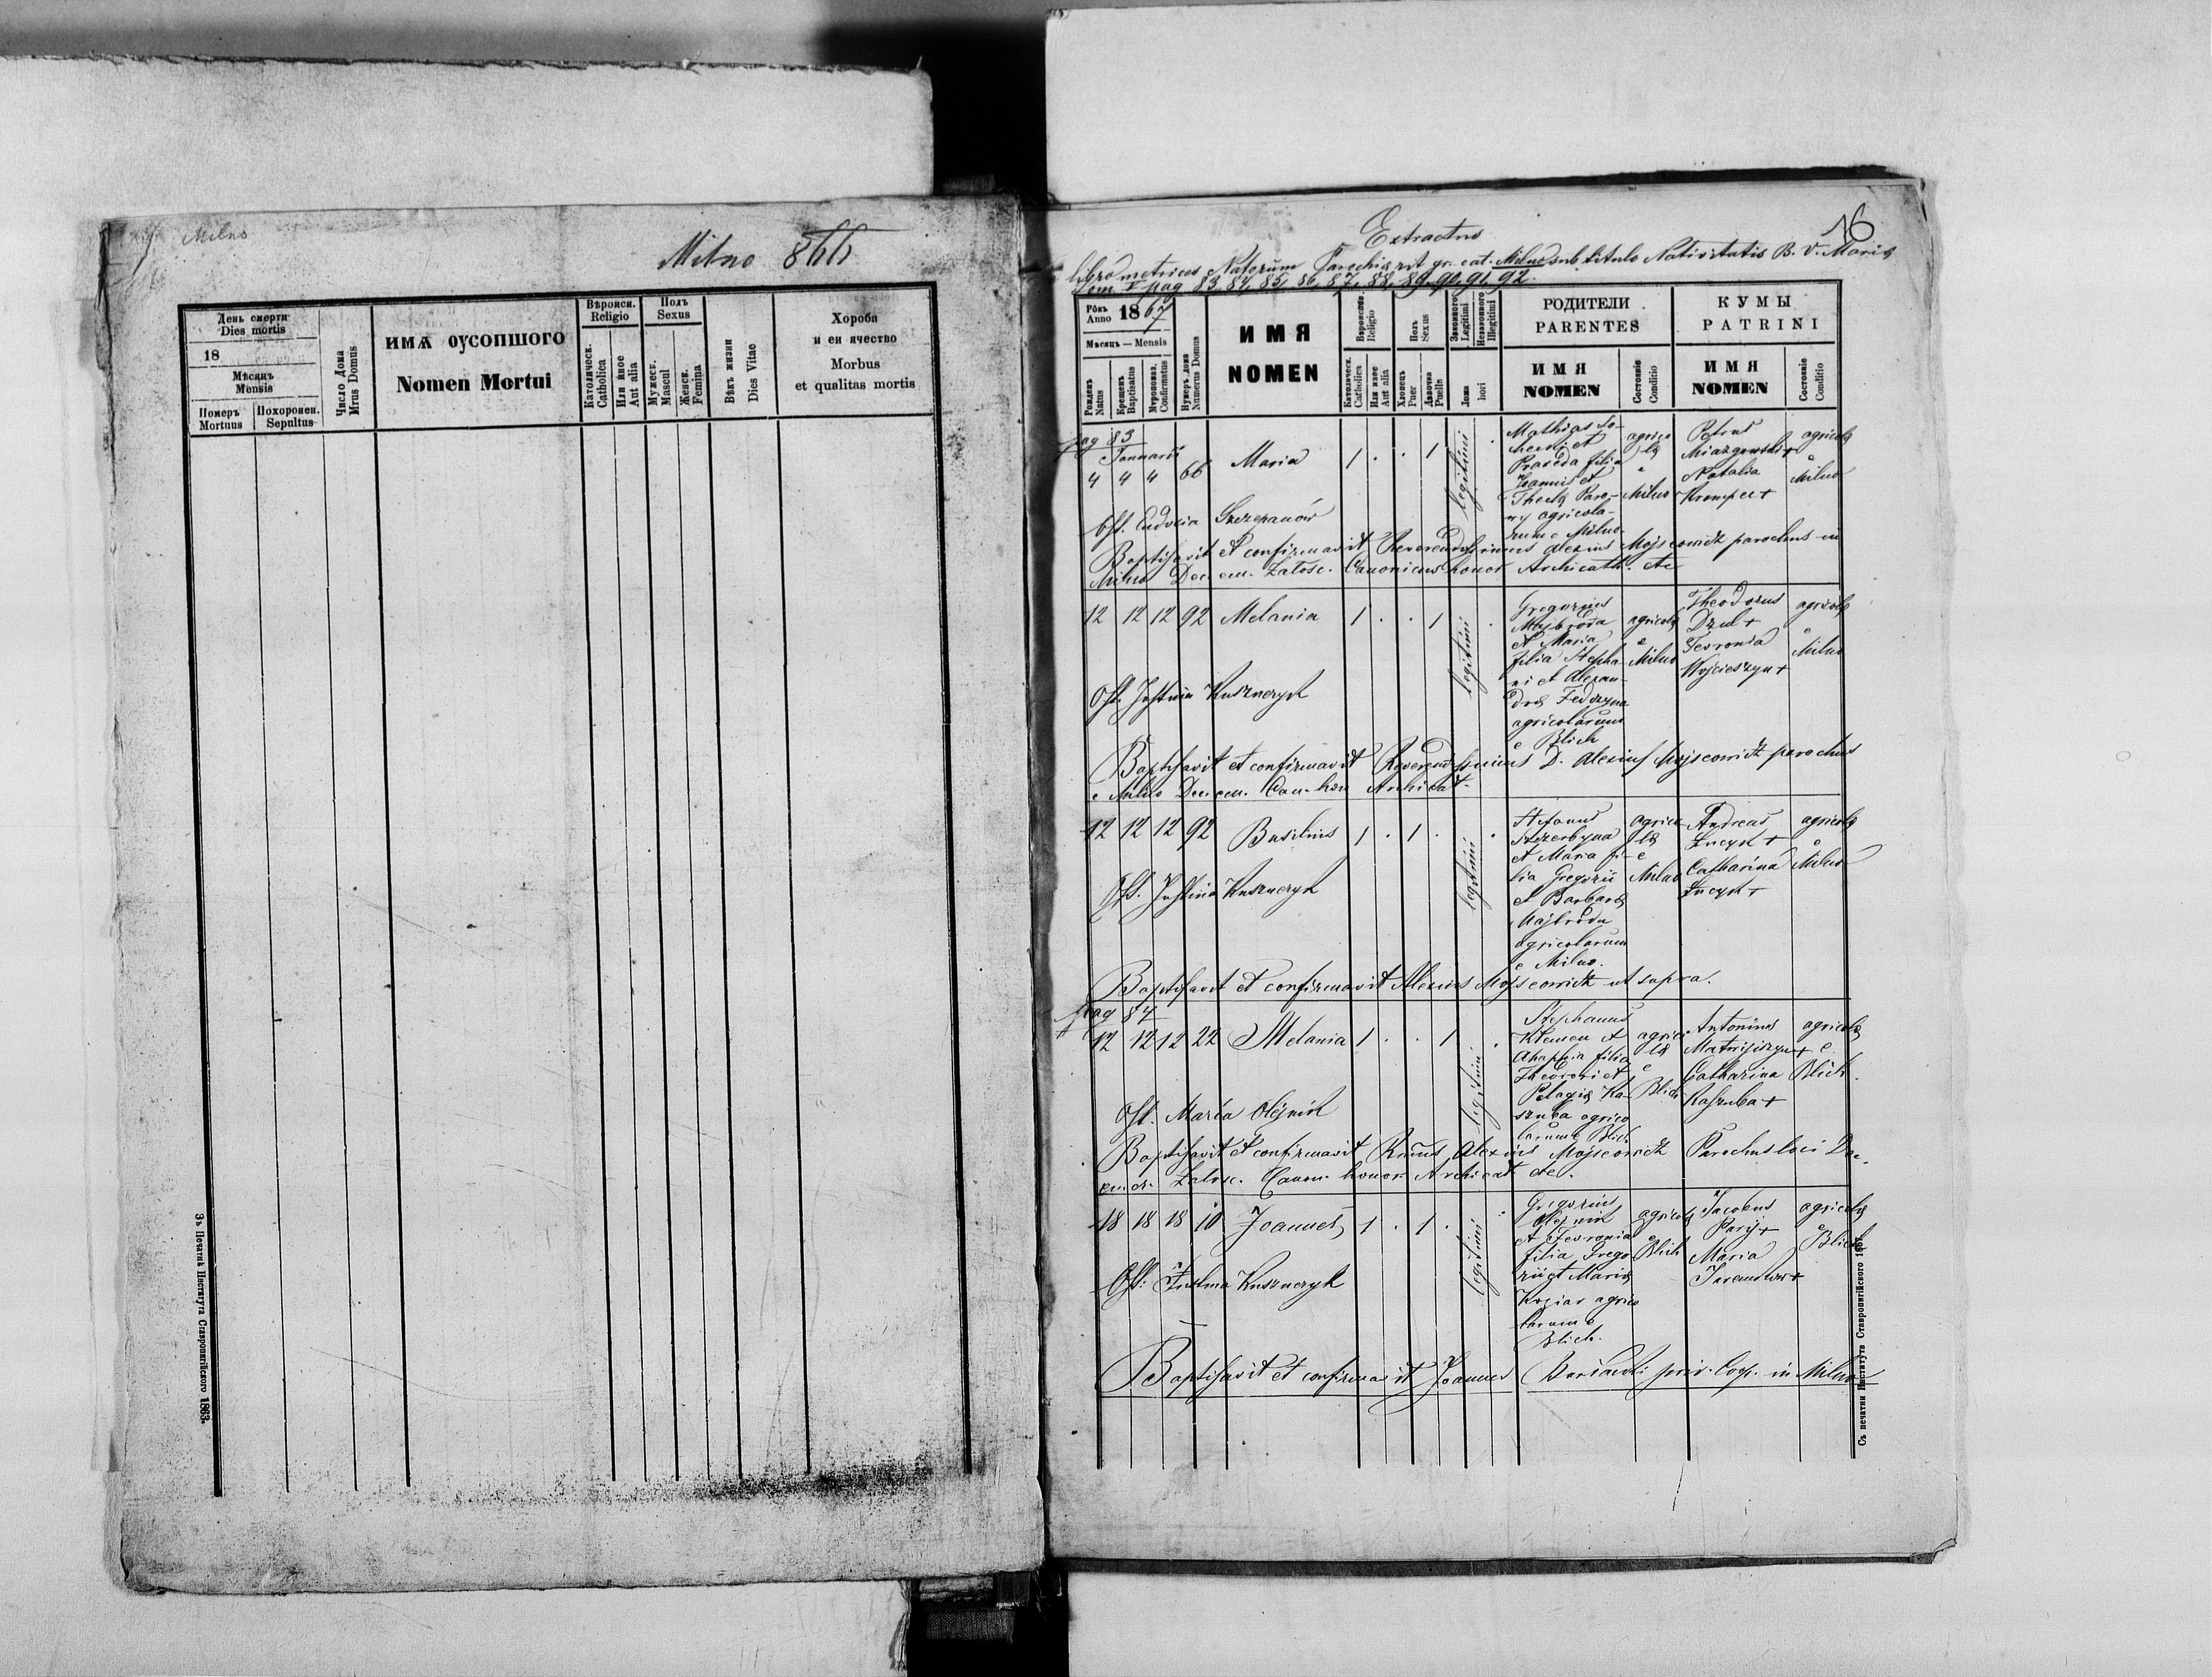 Milno
Milno 866
День смерти
Dies mortis
18
Мѣсяцъ
Mensis
Померъ
Mortuus
Похоронен.
Sepultus
Число Дома
Nrus Domus
ИМѦ ОУСОПШОГО
Nomen Mortui
Вѣроисп.
Religio
Католическ.
Catholica
Или иное
Aut alia
Полъ
Sexus
Мужеск.
Mascul
Женск.
Femina
Вѣкъ жизни
Dies Vitae
Хороба
и еи ячество
Morbus
et qualitas mortis
Зъ Печатнѣ Института Ставропигійского 1863.
16
Extractus
libro metrices Natorum Parochiæ rit. gr. cat. Milno sub titulo Nativitatis B. V. Mariæ
Tom. V pag 83, 84, 85, 86, 87, 88, 89, 90, 91, 92.
Рôкъ
Anno 1867
Мѣсяцъ — Mensis
Рожденъ
Natus
Крещенъ
Baptisatus
Мѵропомаз.
Confirmatus
Нумеръ дома
Numerus Domus
ИМЯ
NOMEN
Вѣроисповѣд.
Religio
Католическ.
Catholica
Или иное
Aut alia
Полъ
Sexus
Хлопецъ
Puer
Дѣвочка
Puella
Законного
Legitimi
Незаконного
Illegitimi
Ложа
hori
РОДИТЕЛИ
PARENTES
ИМЯ
NOMEN
Состояніе
Conditio
КУМЫ
PATRINI
ИМЯ
NOMEN
Состояніе
Conditio
pag 83
Januarii
4 4 4 66 Maria 1 . . 1 legitimi .
Mathias
et
filia
Joannis et
Theclæ
agricola-
rum e Milno
agrico
læ
e
Milno
Petrus
Natalia
Krompec +
agricolæ
e
Milno
Obst. Eudocia Szczepanów
Baptisavit et confirmavit Reverendissimus Alexius Mojseowicz parochus in
Milno Dec. em. Załosc. Canonicus honor Archicath. etc
12 12 12 92 Melania 1 . . 1 legitimi .
Gregorius
Majbroda
et Maria
filia Stepha-
ni et Alexan-
dræ
agricolarum
e Blich
agricolæ
e
Milno
Theodorus
Dzul +
Fevronia
Wojcieszyn +
agricolæ
e
Milno
Obst. Justina Kuszneryk
Baptisavit et confirmavit Reverendissimus D. Alexius Mojseowicz parochus
e Milno Dec. em. Can. hon Archicat.
12 12 12 92 Basilius 1 . 1 . legitimi .
Stefanus
Szczerbyna
et Maria fi-
lia Gregorii
et Barbaræ
Majbroda
agricolarum
e Milno.
agrico
læ
e
Milno
Andreas
+
Catharina
+
agricolæ
e
Milno
Obst. Justina Kuszneryk
Baptisavit et confirmavit Alexius Mojseowicz ut supra.
pag 84
12 12 12 22 Melania 1 . . 1 legitimi .
Stephanus
Klemen et
Ahaphia filia
Theodori et
Pelagiæ Ka-
szuba agrico
larum e Blich
agrico
læ
e
Blich
Antonius
Matwijiszyn +
Catharina
Kaszuba +
agricolæ
e
Blich.
Obst. Maria Olejnik
Baptisavit et confirmavit Rmus Alexius Mojseowicz Parochus loci Dec.
emer. Załosc. Canon. honor. Archicat etc.
18 18 18 10 Joannes 1 . 1 . legitimi .
Gregorius
Olejnik
et Fevronia
filia Grego
rii et Mariæ
Koziar agrico
larum e
Blich.
agricolæ
e
Blich
Jacobus
Paryj +
Maria
agricolæ
e
Blich
Obst: Justina Kuszneryk
Baptisavit et confirmavit Joannes priv. Coop. in Milno
Съ печатни Института Ставропигійского 1867.